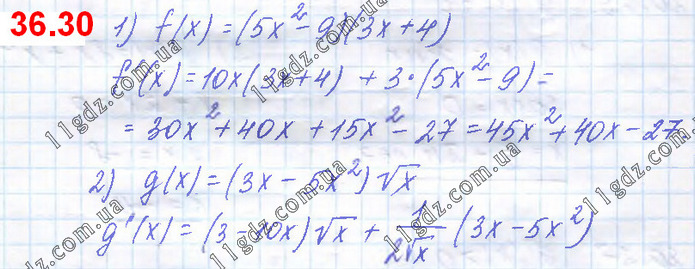 36.30
1) f(x) = (5x² - 9)(3x + 4)
f'(x) = 10x(3x + 4) + 3·(5x² - 9) =
= 30x² + 40x + 15x² - 27 = 45x² + 40x - 27
2) g(x) = (3x - 5x²)√x
g'(x) = (3 - 10x)√x + 1/(2√x) (3x - 5x²)
11gdz.com
11gdz.com
11gdz.com
11gdz.com
11gdz.com
11gdz.com